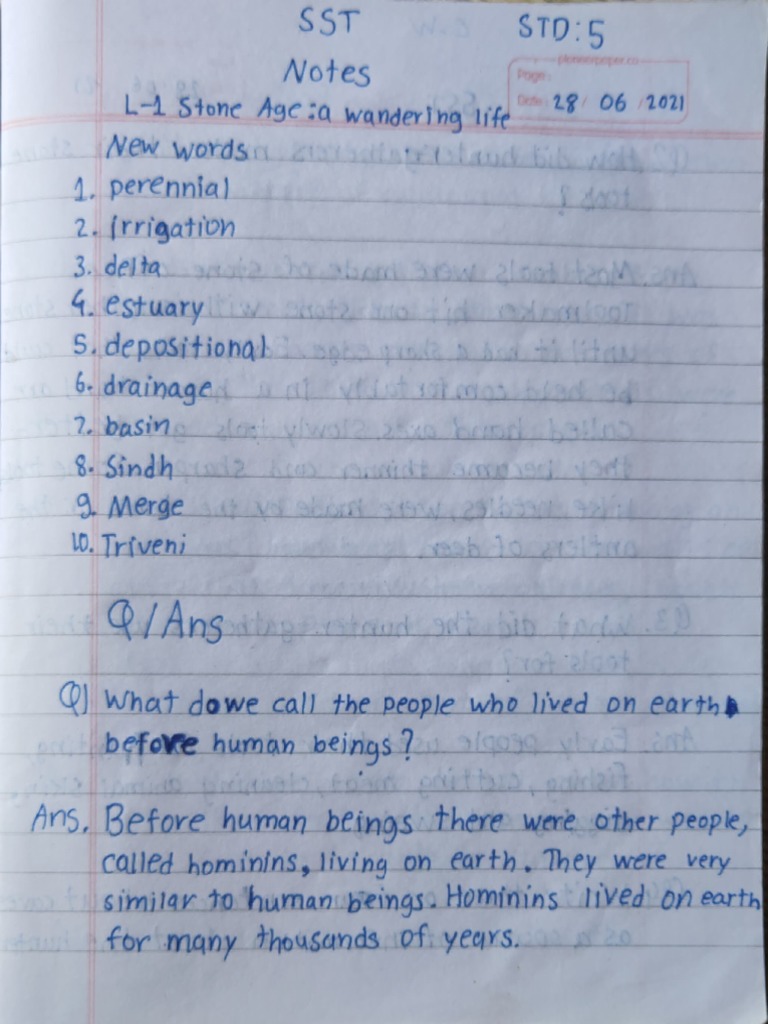 SST STD: 5
Notes
pioneerpaper.co
Page:
Date: 28 06 2021
L-1 Stone Age : a wandering life
New words
1. perennial
2. Irrigation
3. delta
4. estuary
5. depositional
6. drainage
7. basin
8. Sindh
9. Merge
10. Triveni
Q/Ans
Q1 What do we call the people who lived on earth
before human beings?
Ans. Before human beings there were other people,
called hominins, living on earth. They were very
similar to human beings. Hominins lived on earth
for many thousands of years.